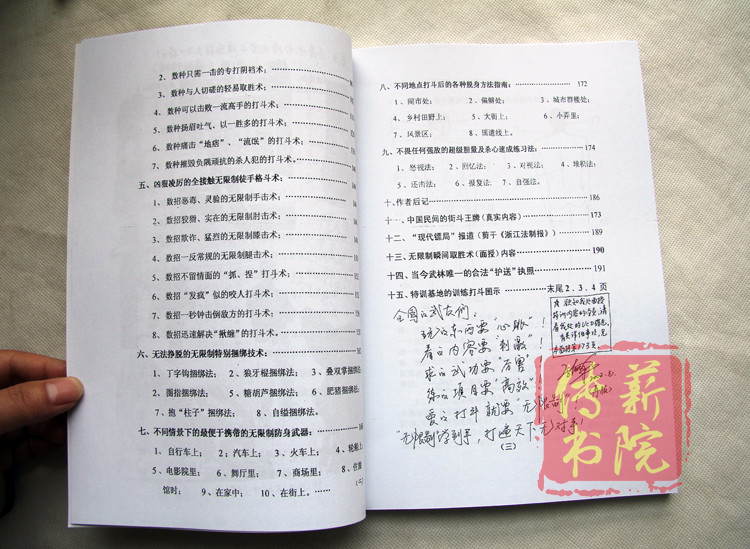 2、数种只需一击的专打阴裆术:
3、数种与人切磋的轻易取胜术:
4、数种可以击败一流高手的打斗术:
5、数种扬眉吐气、以一胜多的打斗术:
6、数种痛击“地痞”、“流氓”的打斗术:
7、数种摧毁负隅顽抗的杀人犯的打斗术。
五、凶狠凌厉的全接触无限制徒手格斗术:
1、数招恶毒、灵验的无限制手击术:
2、数招狡猾、实在的无限制肘击术:
3、数招欺诈、猛烈的无限制膝击术:
4、数招一反常规的无限制腿击术:
5、数招不留情面的“抓、捏”打斗术:
6、数招“发疯”似的咬人打斗术:
7、数招一秒钟击倒敌方的打斗术:
8、数招迅速解决“揪缠”的打斗术。
六、无法挣脱的无限制特别捆绑技术:
1、丁字钩捆绑法; 2、狼牙棍捆绑法; 3、叠双掌捆绑
4、圈指捆绑法; 5、糖葫芦捆绑法; 6、肥猪捆绑
7、抱“柱子”捆绑法; 8、自缢捆绑法:
七、不同情景下的最便于携带的无限制防身武器:
1、自行车上; 2、汽车上; 3、火车上; 4、轮船上
5、电影院里; 6、舞厅里; 7、商场里; 8、住旅
馆时; 9、在家中; 10、在街上。
八、不同地点打斗后的各种脱身方法指南: 172
1、闹市处; 2、偏僻处; 3、城市群楼处;
4、乡村田野上; 5、大街上; 6、小弄里;
7、风景区; 8、街道线上。
九、不畏任何强敌的超级胆量及杀心速成练习法: 174
1、怒视法; 2、回忆法; 3、对视法; 4、堆积法;
5、还击法; 6、报复法; 7、自强法。
十、作者后记 186
十一、中国民间的街斗王牌(真实内容) 173
十二、“现代镖局”报道(剪于《浙江法制报》) 189
十三、无限制瞬间取胜术(面授)内容 190
十四、当今武林唯一的合法“护送”执照 191
十五、特训基地的训练打斗图示 末尾2.3.4页
全国的武友们:
玩的东西要“心跳”!
看的内容要“刺激”!
求的武功要“厉害”
练的项目要“高效”!
要的打斗就要“无限制”
“无限制”学到手,打遍天下无对手!
(三)
传薪
书院